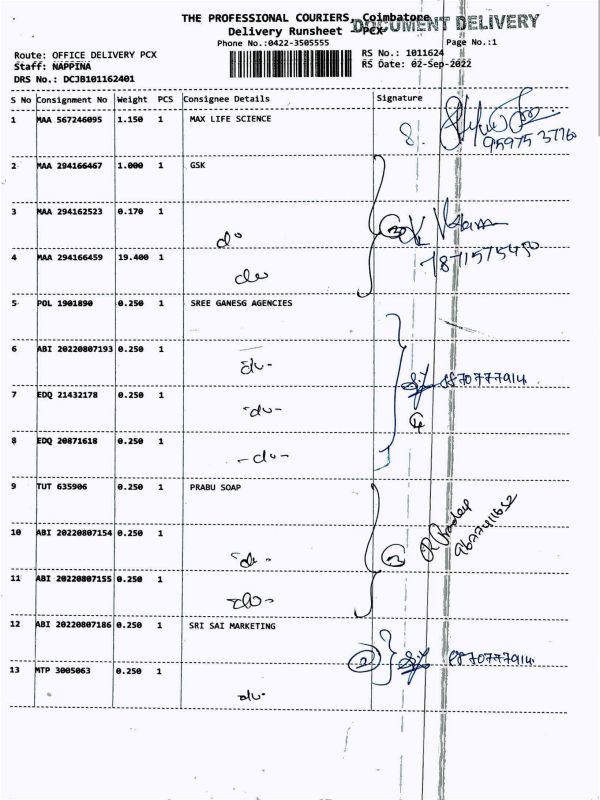 THE PROFESSIONAL COURIERS, Coimbatore
DOCUMENT DELIVERY
Delivery Runsheet - PCX
Phone No.:0422-3505555 Page No.:1
Route: OFFICE DELIVERY PCX RS No.: 1011624
Staff: NAPPINA RS Date: 02-Sep-2022
DRS No.: DCJB101162401
S No Consignment No Weight PCS Consignee Details Signature
1 MAA 567246095 1.150 1 MAX LIFE SCIENCE
8.
2 MAA 294166467 1.000 1 GSK
3 MAA 294162523 0.170 1
do
4 MAA 294166459 19.400 1
do
5 POL 1901890 0.250 1 SREE GANESG AGENCIES
6 ABI 20220807193 0.250 1
-do-
8870777914
7 EDQ 21432178 0.250 1
-do-
4
8 EDQ 20871618 0.250 1
-do-
9 TUT 635906 0.250 1 PRABU SOAP
R Pradeep
9677411652
10 ABI 20220807154 0.250 1
-do-
3
11 ABI 20220807155 0.250 1
-do-
12 ABI 20220807186 0.250 1 SRI SAI MARKETING
2 8870777914
13 MTP 3005063 0.250 1
-do-